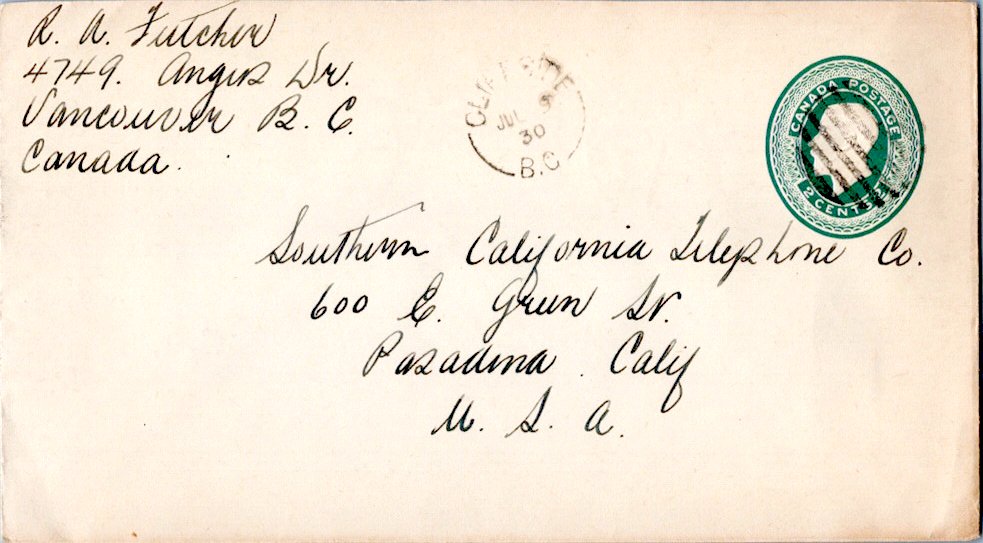 R. A. Futcher
4749. Angus Dr.
Vancouver B. C.
Canada.
JUL
30
B.C
CANADA POSTAGE
2 CENTS
Southern California Telephone Co.
600 E. Green St.
Pasadena Calif
U. S. A.